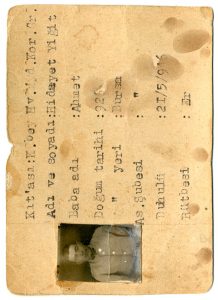 Kıt'ası:
Adı ve soyadı:Hidayet Yiğit
Baba adı :Ahmet
Doğum tarihi :926
" yeri :Bursa
As.Şubesi : "
Duhulü :21/5/946
Rütbesi : Er